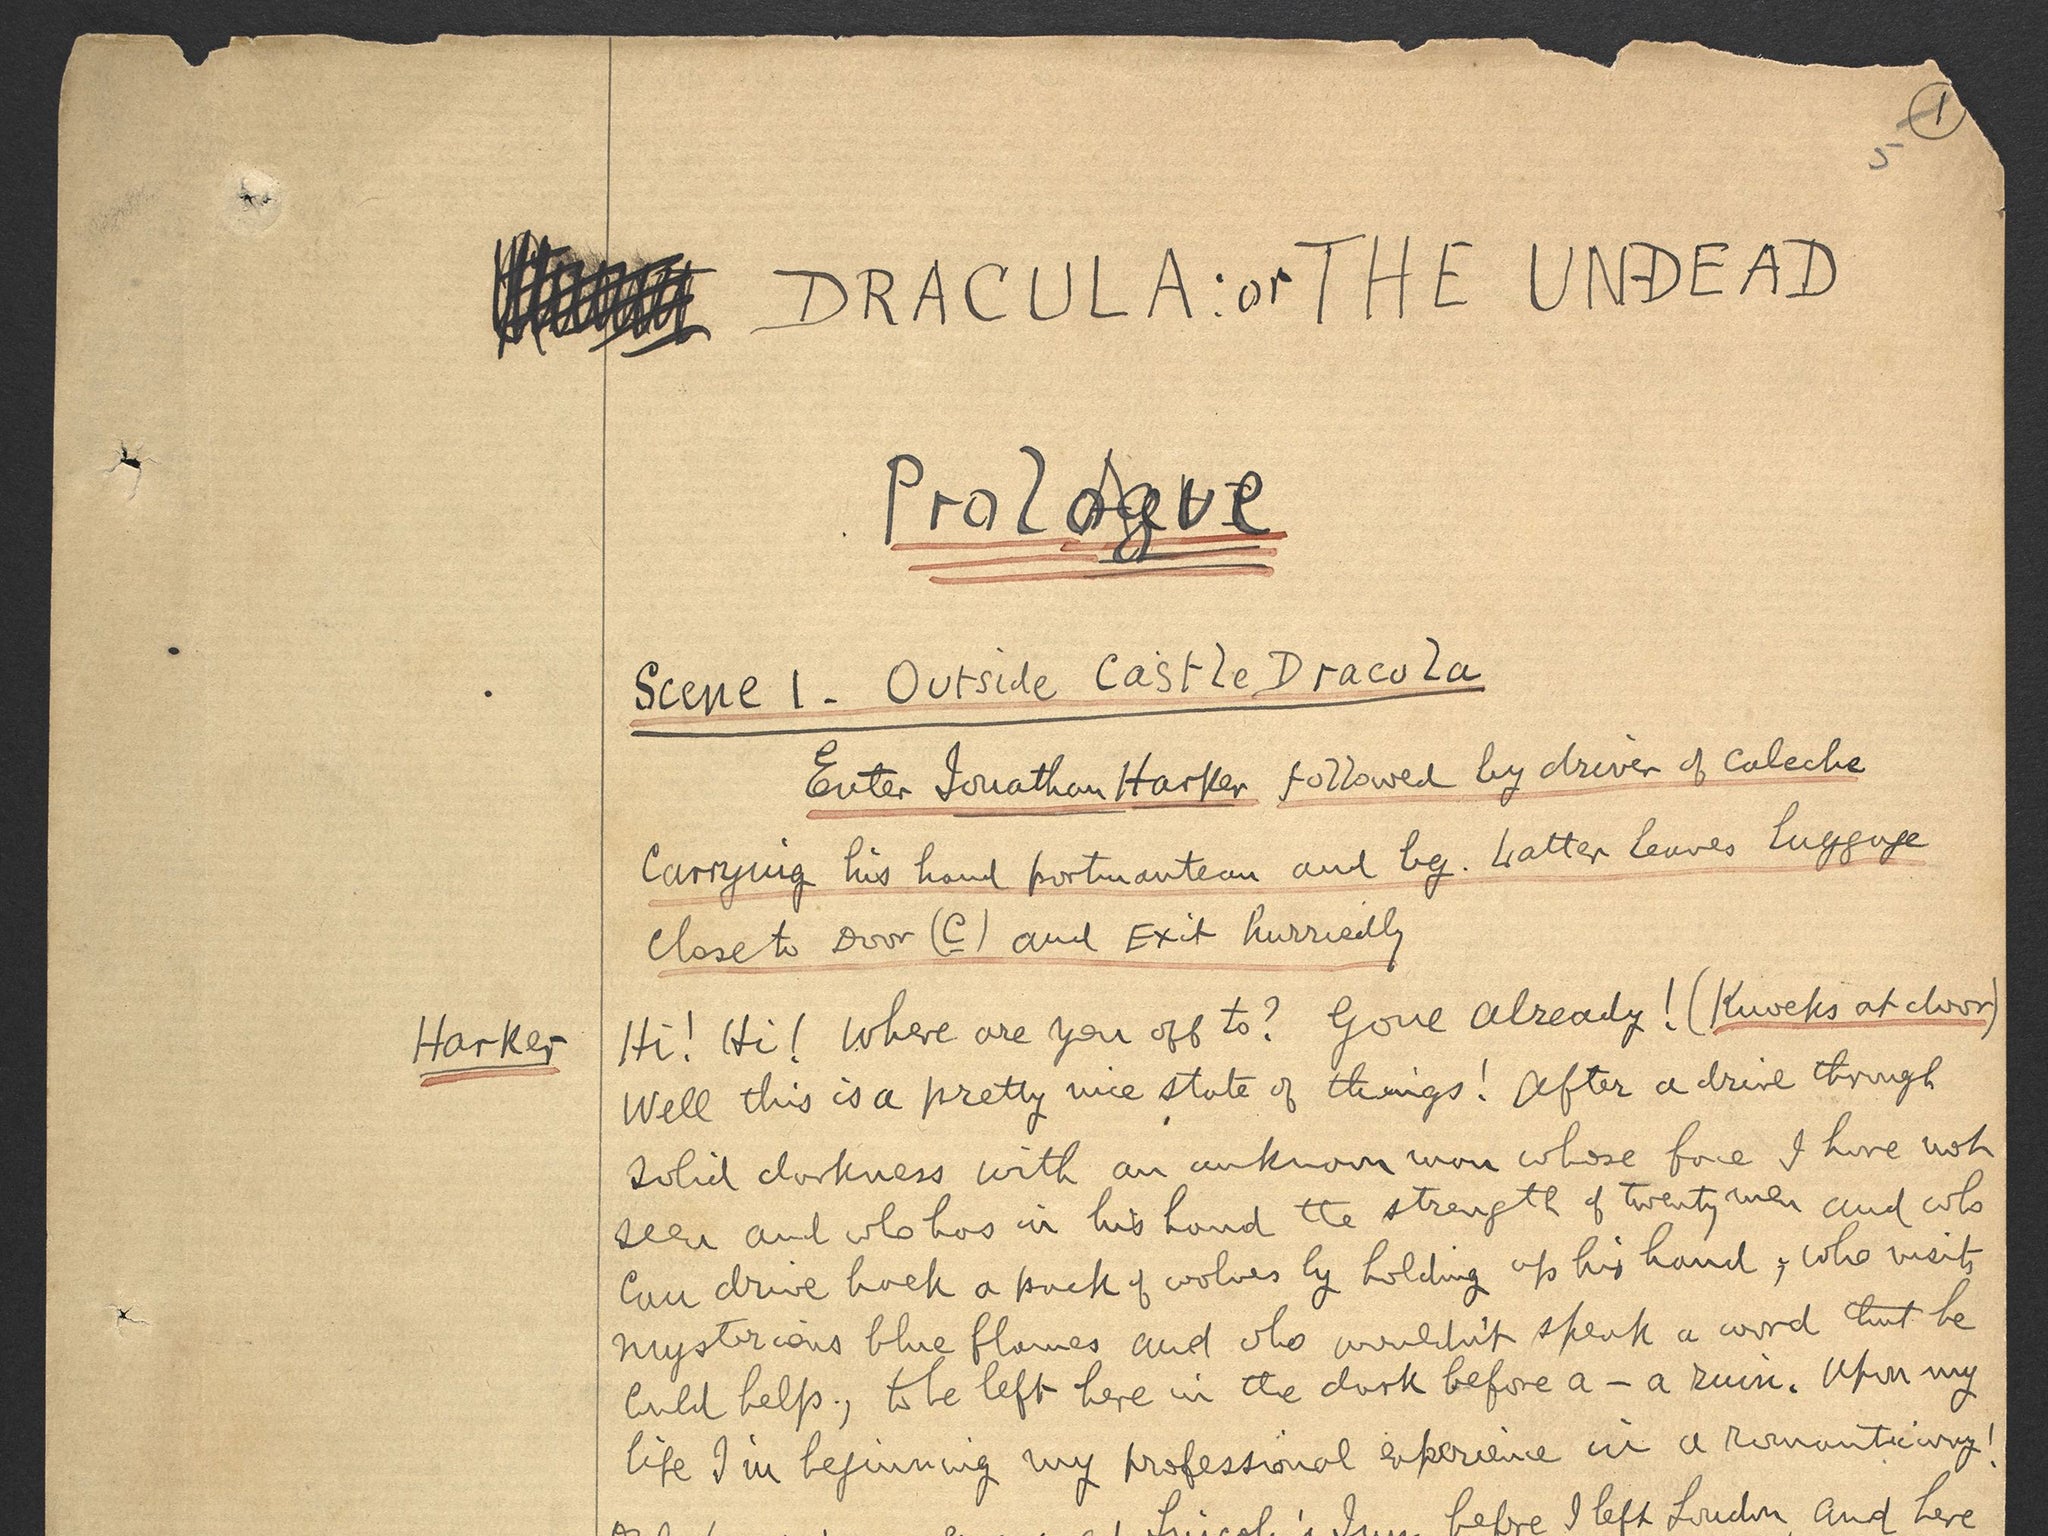 1
5
DRACULA: or THE UNDEAD
Prologue
Scene 1. Outside Castle Dracula
Enter Jonathan Harker followed by driver of caleche
carrying his hand portmanteau and bag. Latter leaves luggage
close to door (C) and Exit hurriedly
Harker Hi! Hi! Where are you off to? Gone already! (Knocks at door)
Well this is a pretty nice state of things! After a drive through
solid darkness with an unknown man whose face I have not
seen and who has in his hand the strength of twenty men and who
can drive back a pack of wolves by holding up his hand; who visits
mysterious blue flames and who wouldn't speak a word that he
could help, to be left here in the dark before a – a ruin. Upon my
life I'm beginning my professional experience in a romantic way!
at Lincoln's Inn before I left London, and here